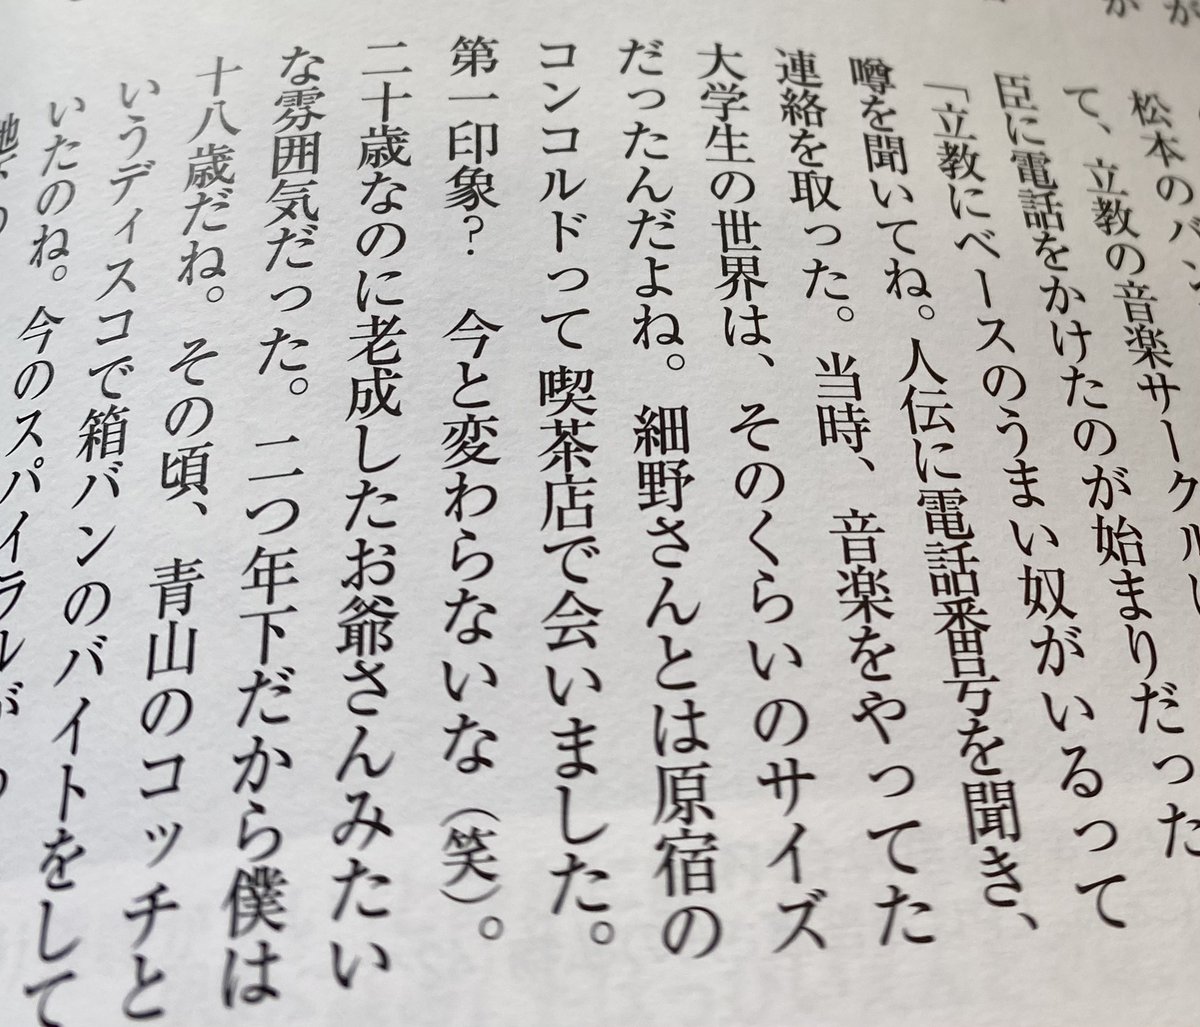 松本のバン
て、立教の音楽サークル
臣に電話をかけたのが始まりだった
「立教にベースのうまい奴がいるって
噂を聞いてね。人伝に電話番号を聞き、
連絡を取った。当時、音楽をやってた
大学生の世界は、そのくらいのサイズ
だったんだよね。細野さんとは原宿の
コンコルドって喫茶店で会いました。
第一印象？　今と変わらないな（笑）。
二十歳なのに老成したお爺さんみたい
な雰囲気だった。二つ年下だから僕は
十八歳だね。その頃、青山のコッチと
いうディスコで箱バンのバイトをして
いたのね。今のスパイラルが